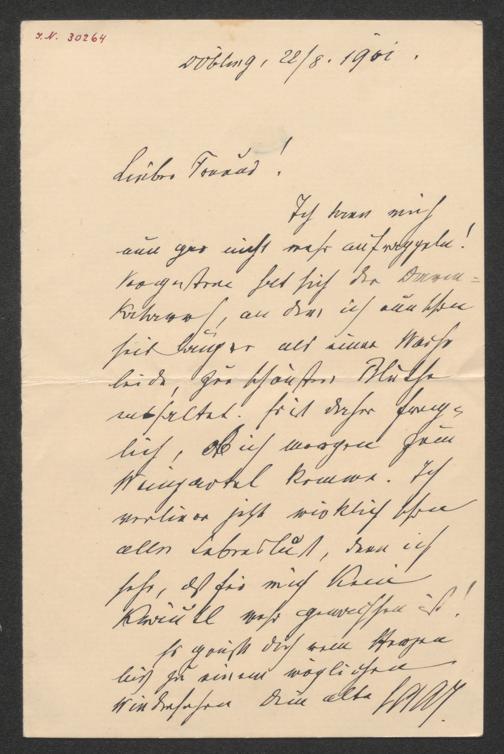 I.N. 30264
Döbling, 22/8. 1901.
Lieber Freund!
Ich kann mich
nun gar nicht mehr aufrappeln!
Vorgestern hat sich der Darm-
katarrh, an dem ich nun schon
seit länger als einer Woche
leide, zur schönsten Blüthe
entfaltet. Es ist daher frag-
lich, ob ich morgen zum
Weingartel komme. Ich
verliere jetzt wirklich schon
alle Lebenslust, denn ich
sehe, daß für mich kein
Kräutl mehr gewachsen ist!
Es grüßt Dich vom Herzen
bis zu einem möglichen
Wiedersehen Dein alter